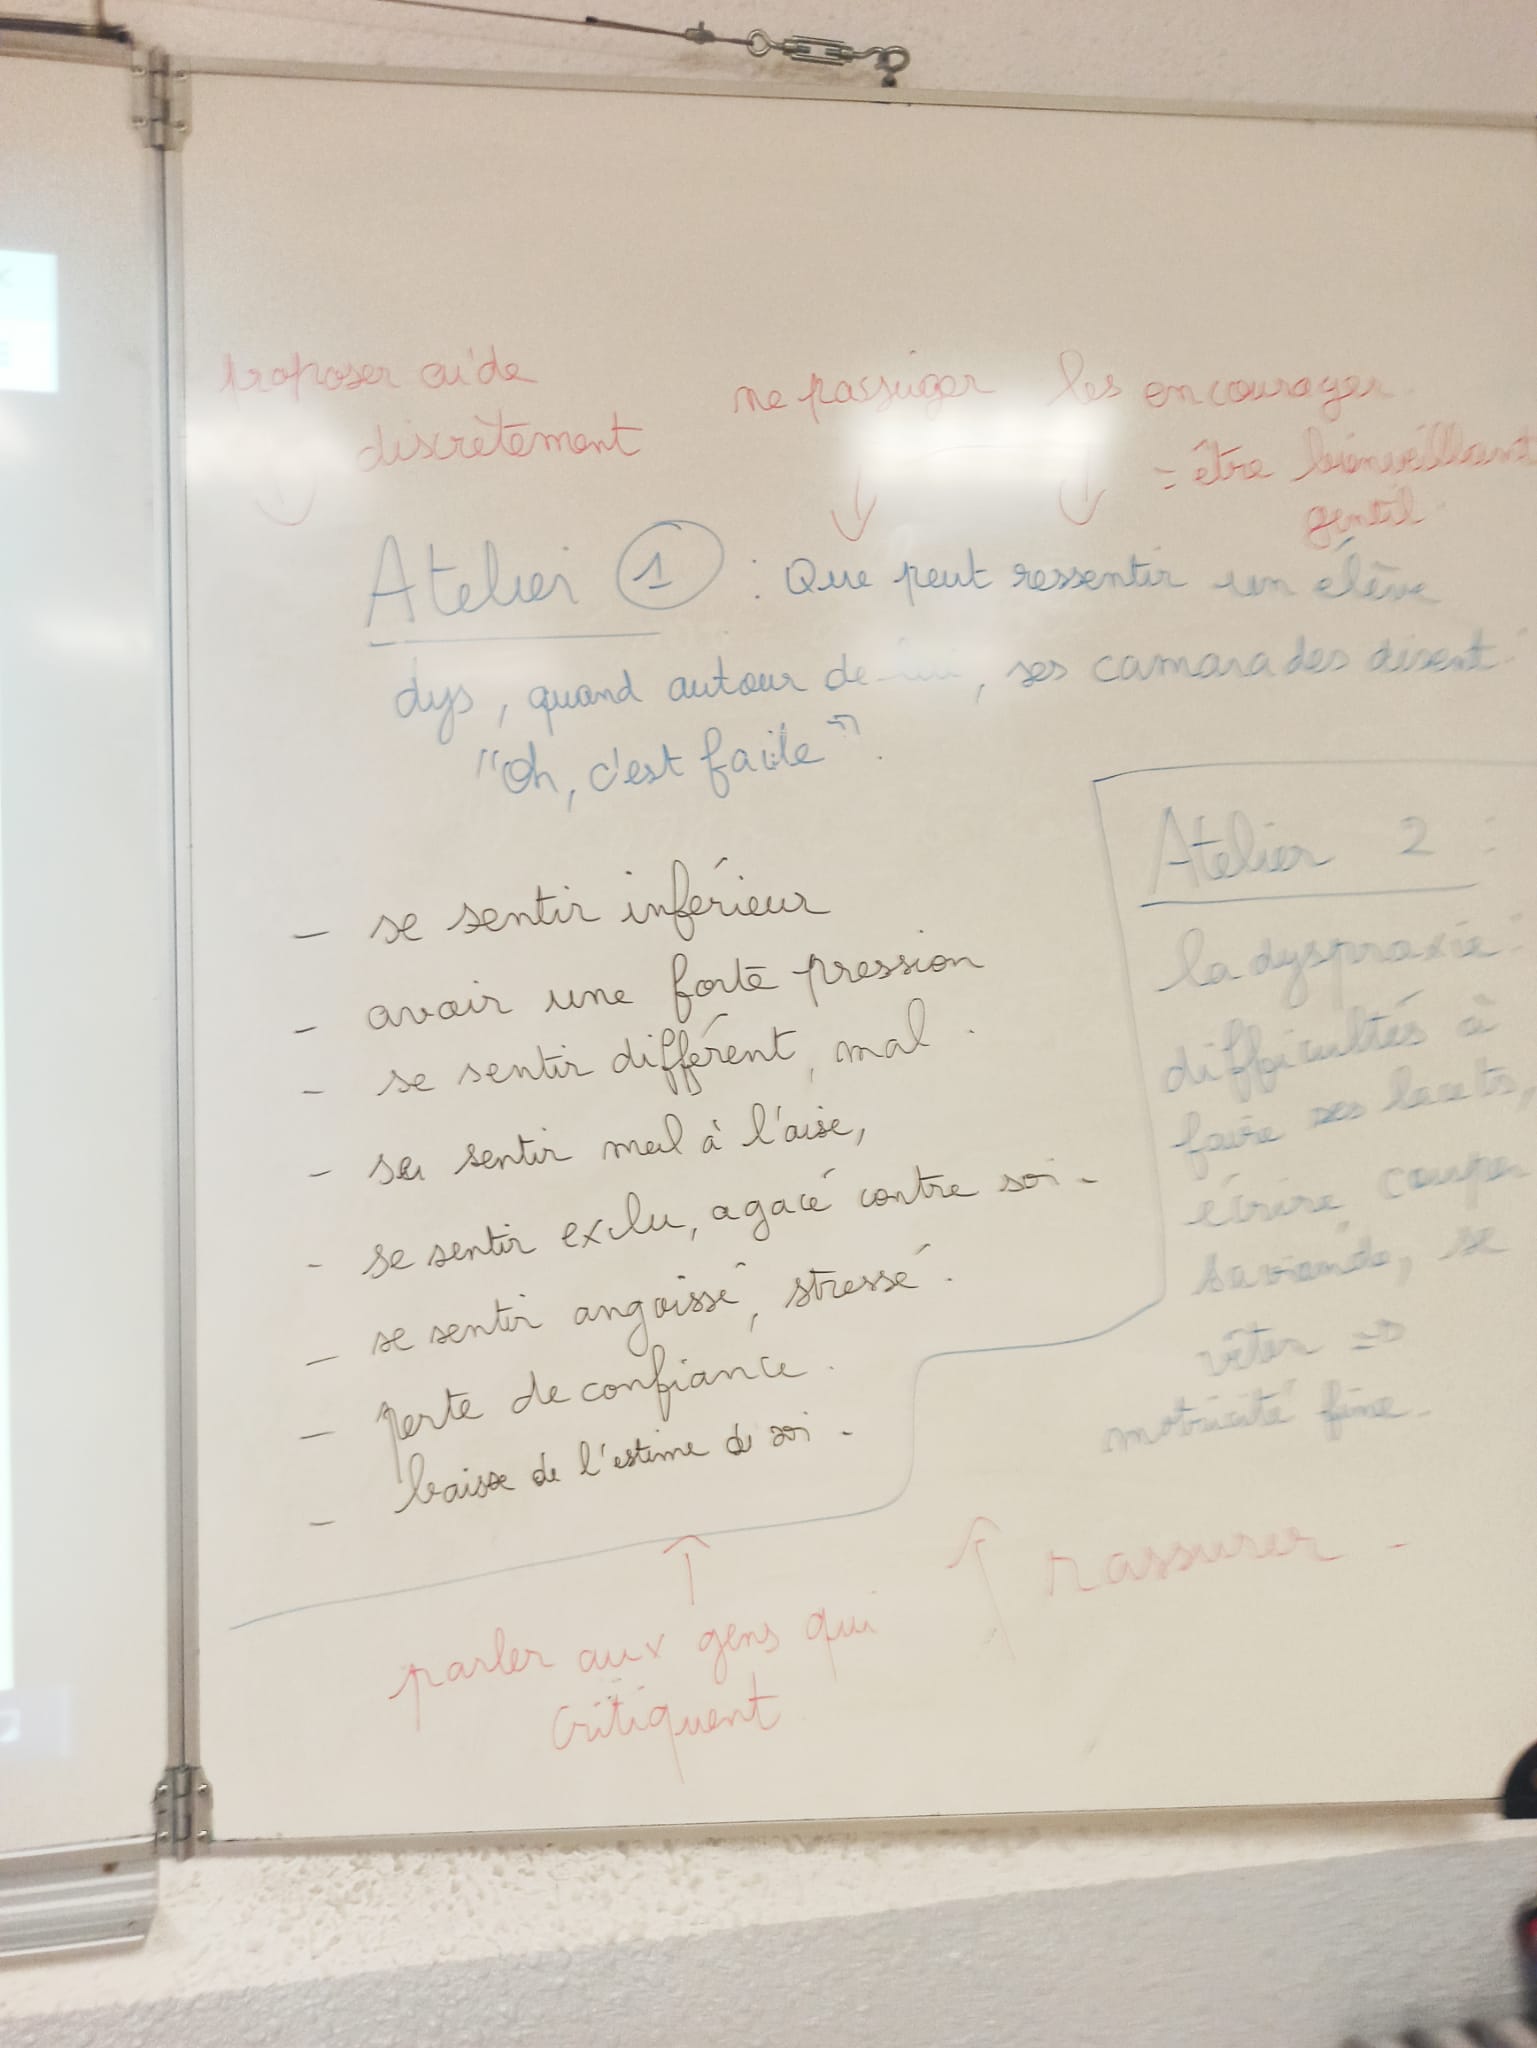 proposer aide
discrètement
ne pas juger
les encourager.
= être bienveillant
gentil.
Atelier 1 : Que peut ressentir un élève
dys, quand autour de lui, ses camarades disent
"Oh, c'est facile".
- se sentir inférieur
- avoir une forte pression
- se sentir différent, mal.
- se sentir mal à l'aise,
- se sentir exclu, agacé contre soi.
- se sentir angoissé, stressé.
- perte de confiance.
- baisse de l'estime de soi.
Atelier 2 :
la dyspraxie :
difficultés à
faire ses lacets,
écrire couper
sa viande, se
vêtir =>
motricité fine.
rassurer.
parler aux gens qui
critiquent